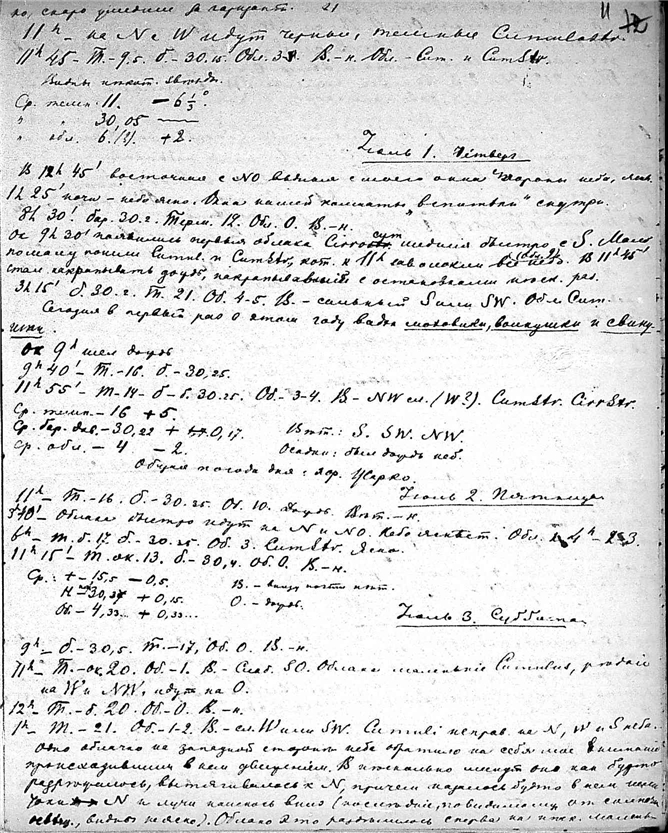 но, скоро
21
11 12
11h – на N и W идут черные, темные Cumulostr.
11h 45 – Т.-9,5. б.-30.15. Обл. 3. В.-н. Обл.- Cum. и CumStr.
Видны некот. звезды.
Ср. темп. 11. – 6 1/3°.
" " 30,05 —
" обл. 6.(?). +2.
Іюль 1. Четверг
В 12h 45' восточная с NO видная с моего окна сторона неба,
1h 25' ночи – небо ясно. Окна нашей комнаты „вспотели" снутри.
8h 30' бар. 30.2. Терм. 12. Обл. О. В.-н.
Ок 9h 30' появились первые облака Cirrocum. шедшія быстро с S. Мало
помалу пошли Cumul. и CumStr, кот. к 11h заволокли все небо. В 11h 45'
стал накрапывать дождь, накрапывавший с остановками неск. раз.
3h 15' б. 30.2. Т. 21. Об. 4-5. В. – сильный S или SW. Обл Cum.
Сегодня в первый раз в этом году видел моховики, волнушки и свину-
шки.
Ок 9h шел дождь
9h 40' – Т.-16. б.-30,25.
11h 55' – Т-14 – б.-30.25. Об.-3-4. В.- NW сл. (W?). CumStr. CirrStr.
Ср. темп. – 16 + 5.
Ср. бар. дав. – 30,22 + 0,17. Вѣт.: S. SW. NW.
Ср. обл. – 4 – 2. Осадки: был дождь неб.
Общая погода дня: яср. Жарко.
Іюль 2. Пятница
11h – Т.-16. б.-30.25. Об. 10. Дождь. Вѣт.-н.
3h40' – Облака быстро идут на N и NO. Небо яснеет. Обл. к 4h – 2-3.
6h – т. б. 17. б.-30.25. Об. 3. CumStr. Ясно.
11h 15' – Т. ок. 13. б.-30,4. Об. О. В.-н.
Ср.: t – 15,5 – 0,5. В. – внизу почти нет.
+ 0,15. О. – дождь.
Об.- 4,33... + 0,33...
Іюль 3. Суббота
9h – б.-30,5. Т.-17, Об. О. В.-н.
11h – Т.-ок. 20. Об.-1. В.- Слаб. SO. Облака маленькіе Cumulus, редкіе
на W и NW, идут на О.
12h – Т.-б. 20. Об.-О. В.-н.
1h – Т.-21. Об.-1-2. В.- сл. W или SW. Cumuli неправ. на N, W и S неба.
Одно облачко на западной стороне неба обратило на себя мое вниманіе
происходившим в нем движеніем. В несколько минут оно как будто
разрушилось, вытягивалось к N, причем казалось будто в нем
N и лучи наискось вниз (последніе, повидимому от солнеч.
освещ., видны неясно). Облако это разделилось сперва на неск. малень-